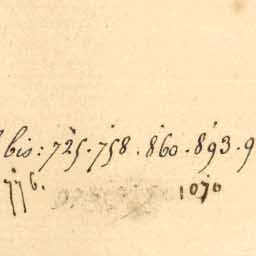 bis: 725. 758. 860. 893. 9
776. 1070